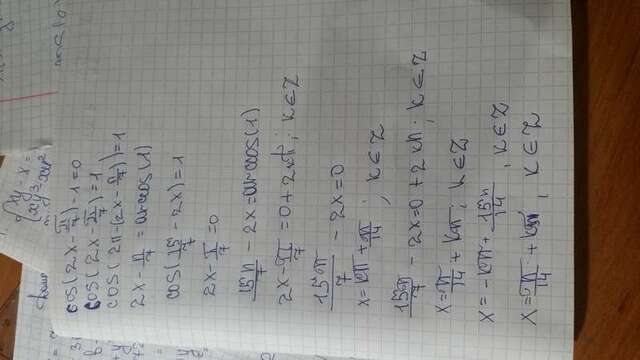 xy - x =
xy³ - xy²
cos(2x - π/7) - 1 = 0
cos(2x - π/7) = 1
cos(2π - (2x - π/7)) = 1
2x - π/7 = arccos(1)
cos(15/7 - 2x) = 1
2x - π/7 = 0
15π/7 - 2x = arccos(1)
2x - π/7 = 0 + 2kπ; k ∈ Z
15π/7 - 2x = 0
x = kπ + π/14; k ∈ Z
15π/7 - 2x = 0 + 2kπ; k ∈ Z
x = π/14 + kπ; k ∈ Z
x = -kπ + 15π/14, k ∈ Z
x = π/14 + kπ, k ∈ Z